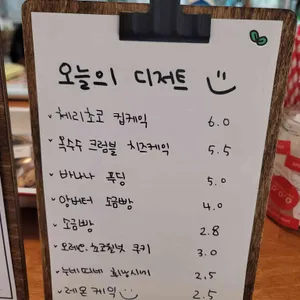 오늘의 디저트
체리초코 컵케익 6.0
옥수수 크럼블 치즈케익 5.5
바나나 푸딩 5.0
앙버터 소금빵 4.0
소금빵 2.8
쿠키 3.0
2.5
레몬 케익 2.5